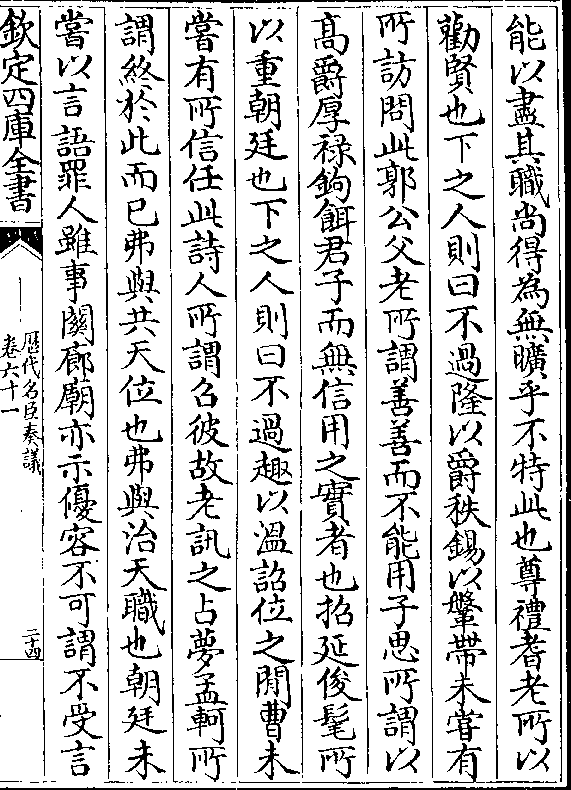 能以盡其職尚得為無曠乎不特此也尊禮耆老所以
勸賢也下之人則曰不過隆以爵秩錫以鞶帶未嘗有
所訪問此郭公父老所謂善善而不能用子思所謂以
高爵厚祿鉤餌君子而無信用之實者也招延俊髦所
以重朝廷也下之人則曰不過趣以溫詔位之閒曹未
嘗有所信任此詩人所謂召彼故老訊之占夢孟軻所
謂終於此而已弗與共天位也弗與治天職也朝廷未
嘗以言語罪人雖事關廊廟亦示優容不可謂不受言
欽定四庫全書
歷代名臣奏議
卷六十一
二十四